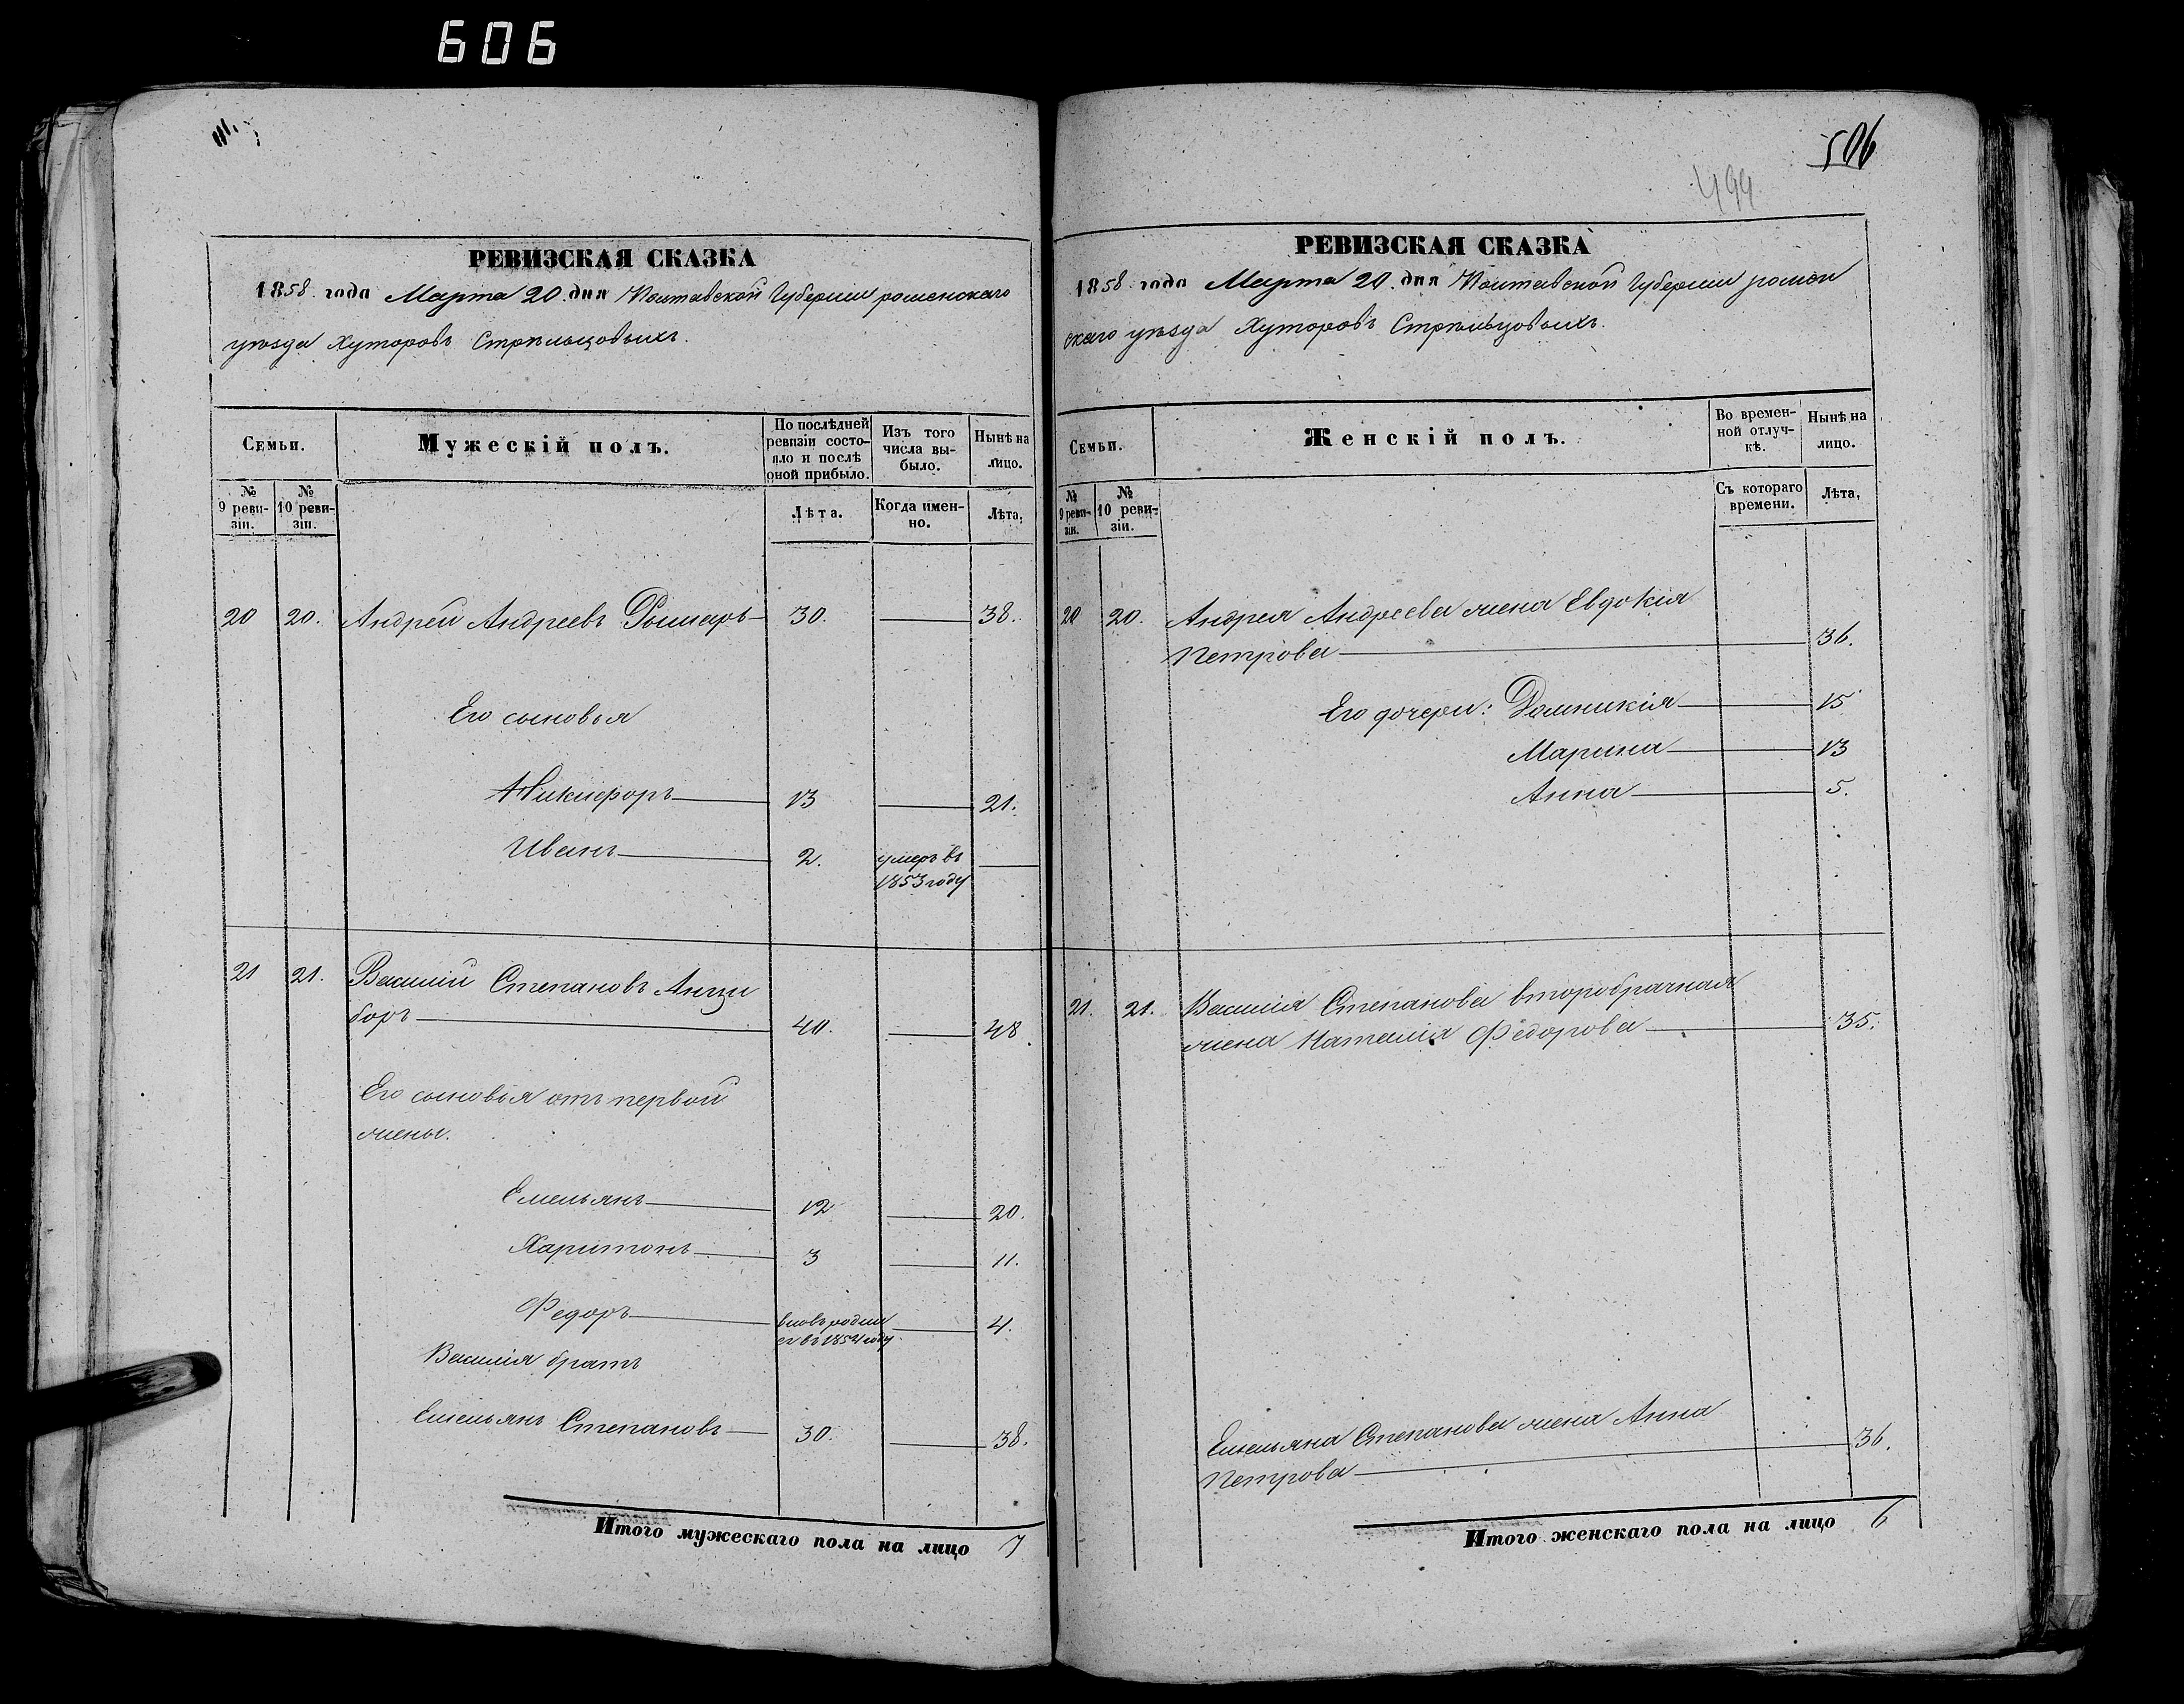 606
506
499
РЕВИЗСКАЯ СКАЗКА
1858 года Марта 20. дня Полтавской Губернии роменскаго
уѣзда Хуторовъ Стрѣльцовыхъ.
Семьи.
Мужескій полъ.
По послѣдней ревизіи состояло и послѣ оной прибыло.
Изъ того числа выбыло.
Нынѣ на лицо.
№ 9 ревизіи.
№ 10 ревизіи.
Лѣта.
Когда именно.
Лѣта.
20 20. Андрей Андреевъ 30. 38.
Его сыновья
Никифоръ 13 21.
Иванъ 2. умеръ въ
1853 году
21 21. Василій Степановъ Анци
боръ 40. 48.
Его сыновья отъ первой
жены.
Емельянъ 12 20.
Харитонъ 3 11.
Федоръ вновь родил 4.
ся въ 1854 году
Василія братъ
Емельянъ Степановъ 30. 38.
Итого мужескаго пола на лицо 7
РЕВИЗСКАЯ СКАЗКА
1858 года Марта 20. дня Полтавской Губернии ромен
скаго уѣзда Хуторовъ Стрѣльцовыхъ.
Семьи.
Женскій полъ.
Во временной отлучкѣ.
Нынѣ на лицо.
№ 9 ревизіи.
№ 10 ревизіи.
Съ котораго времени.
Лѣта.
20 20. Андрея Андреева жена Евдокія
Петрова 36.
Его дочери: Домникія 15
Марина 13
Анна 5.
21. 21. Василія Степанова второбрачная
жена Наталія Федорова 35.
Емельяна Степанова жена Анна
Петрова 36.
Итого женскаго пола на лицо 6